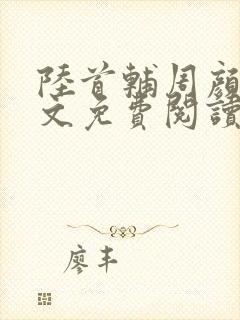 陸首輔周顏
文免費閱讀
廖丰